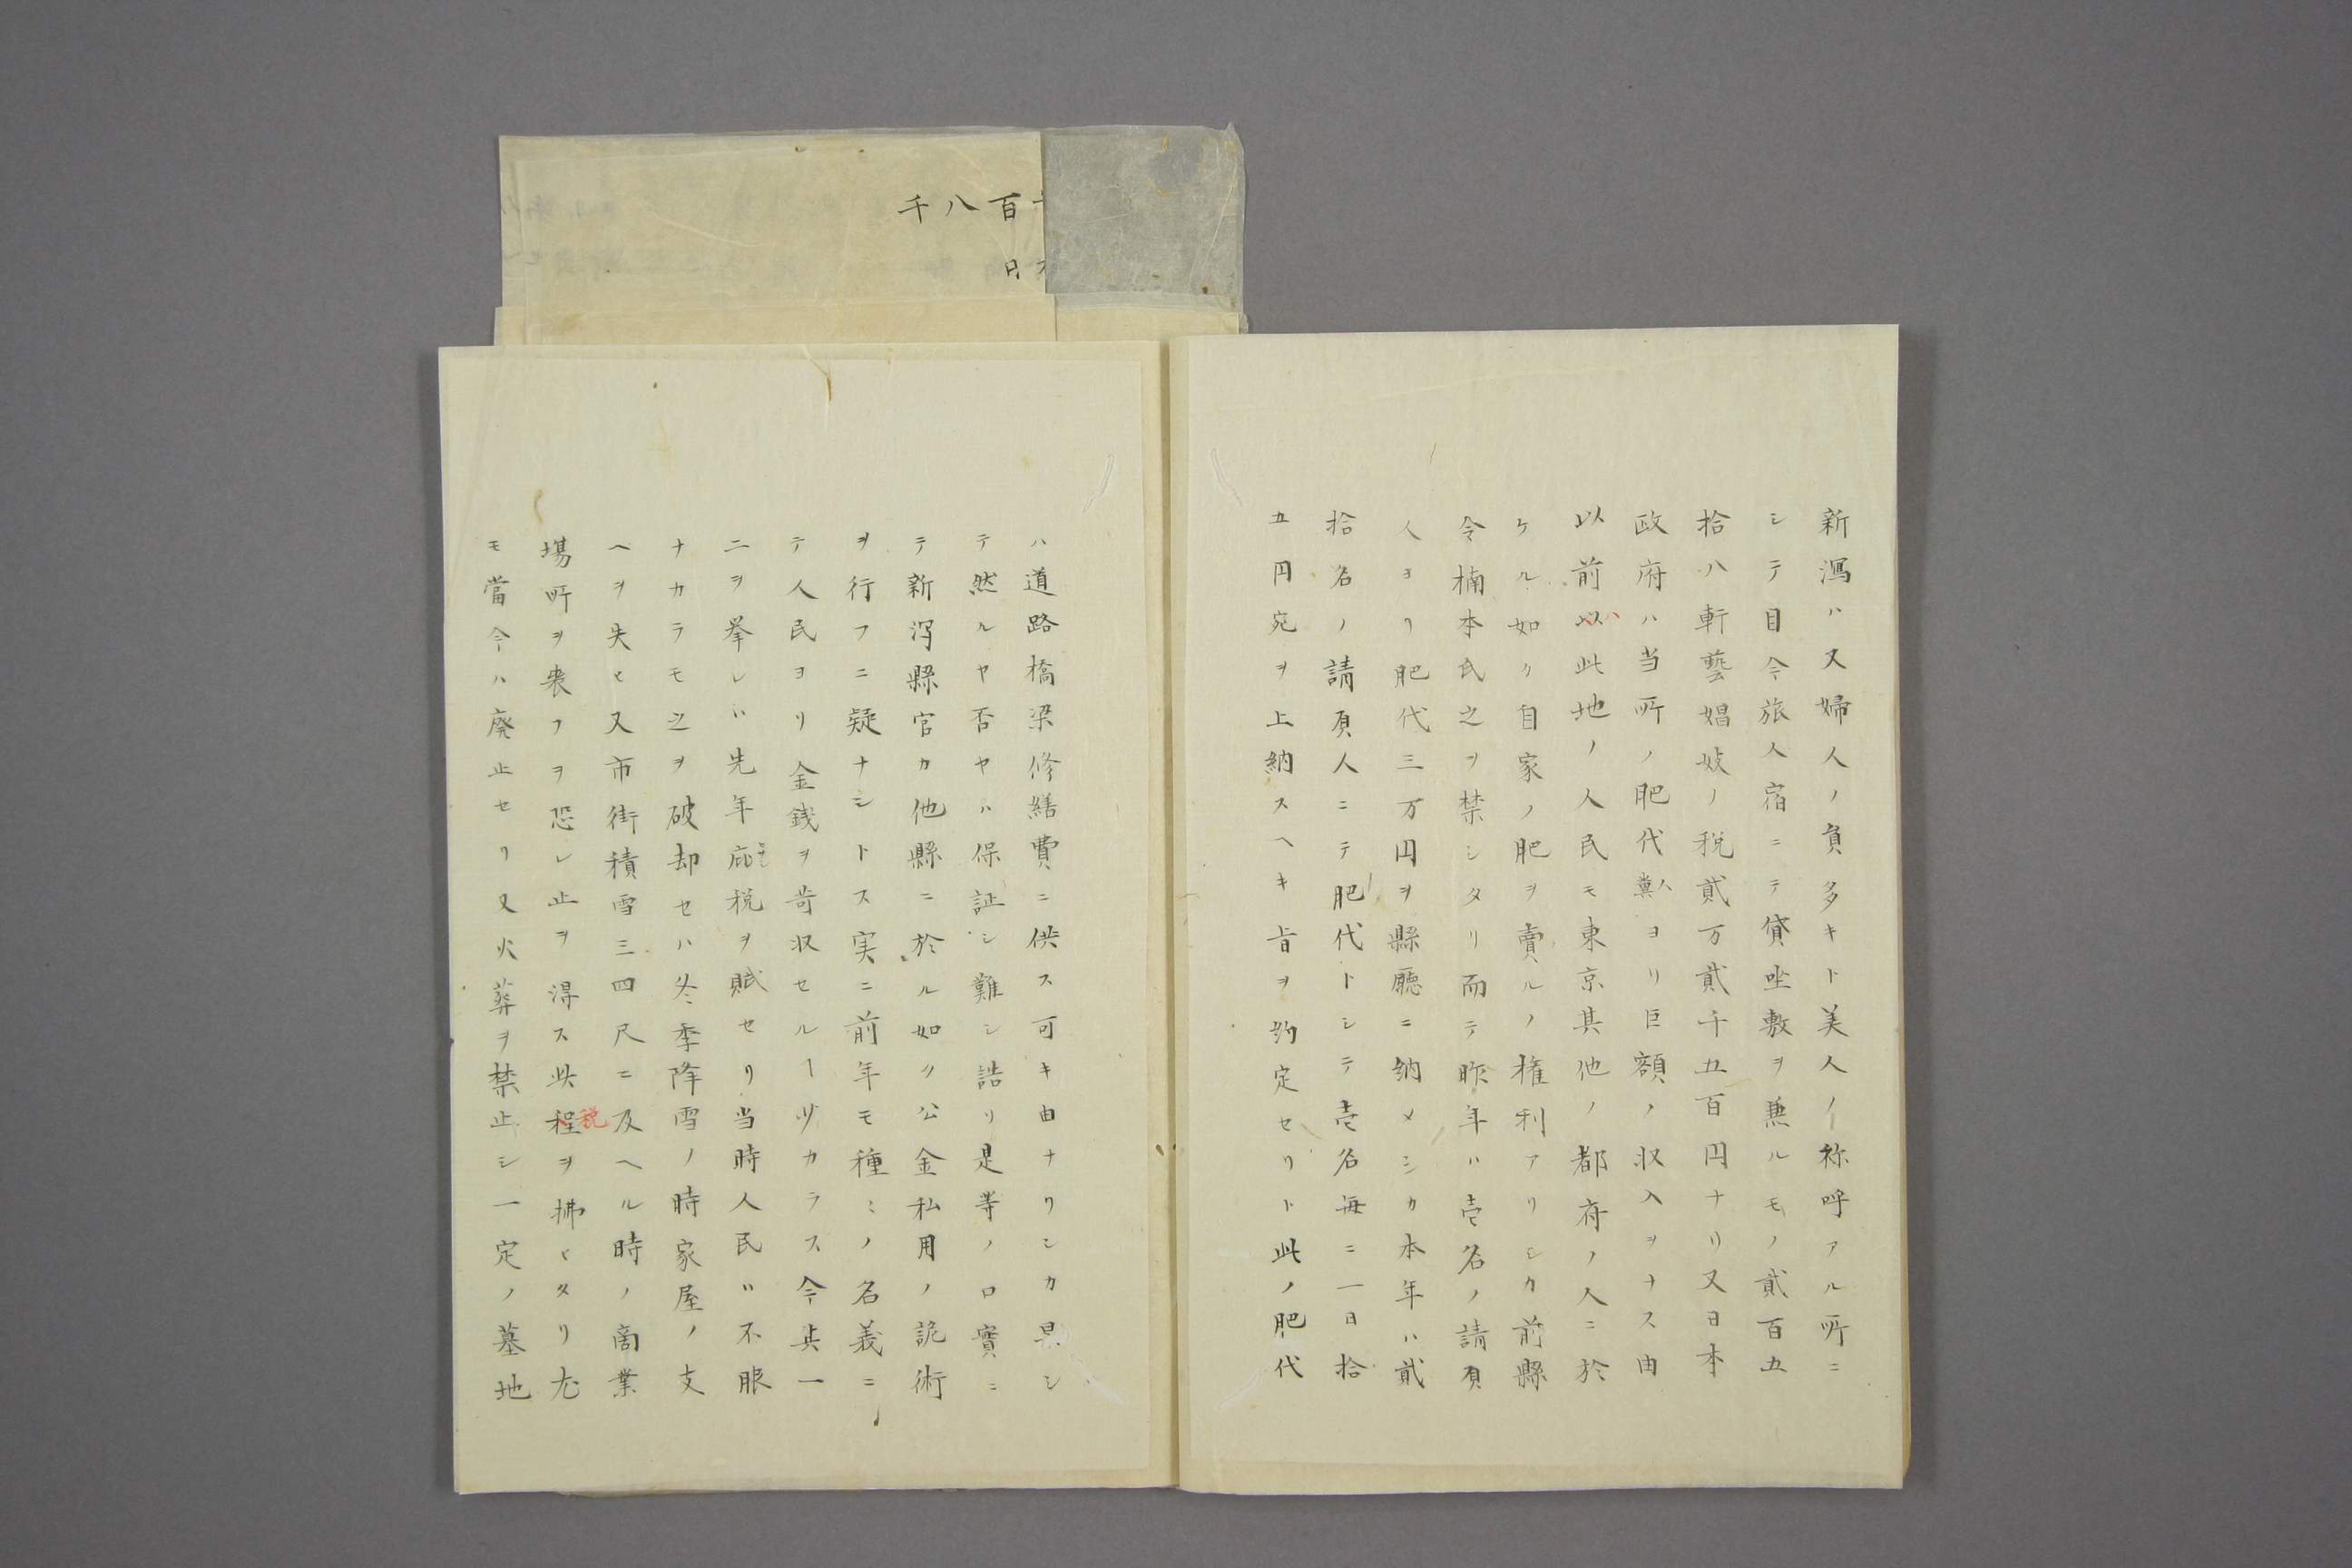 新潟ハ又婦人ノ負多キト美人ノ称呼アル所ニ
シテ目今旅人宿ニテ貸坐敷ヲ兼ルモノ貳百五
拾八軒藝娼妓ノ税貳万貳千五百円ナリ又日本
政府ハ当所ノ肥代人糞ヨリ巨額ノ収入ヲナス由
以前ハ此地ノ人民モ東京其他ノ都府ノ人ニ於
ケル如ク自家ノ肥ヲ賣ルノ権利アリシカ前縣
令楠本氏之ヲ禁シタリ而テ昨年ハ壱名ノ請負
人ヨリ肥代三万円ヲ縣廳ニ納メシカ本年ハ貳
拾名ノ請負人ニテ肥代トシテ壱名毎ニ一日拾
五円宛ヲ上納スヘキ旨ヲ約定セリト此ノ肥代
ハ道路橋梁修繕費ニ供ス可キ由ナリシカ果シ
テ然ルヤ否ヤハ保証シ難シ詰リ是等ノ口實ニ
テ新潟縣官カ他縣ニ於ル如ク公金私用ノ詭術
ヲ行フニ疑ナシトス実ニ前年モ種ミノ名義ニ
テ人民ヨリ金銭ヲ苛収セルー少カラス今其一
二ヲ挙レハ先年庇税ヲ賦セリ当時人民ハ不服
ナカラモ之ヲ破却セハ冬季降雪ノ時家屋ノ支
ヘヲ失ヒ又市街積雪三四尺ニ及ヘル時ノ商業
場所ヲ喪フヲ恐レ止ヲ得ス此税程ヲ拂ヒタリ尤
モ當今ハ廃止セリ又火葬ヲ禁止シ一定ノ墓地
千八百
日